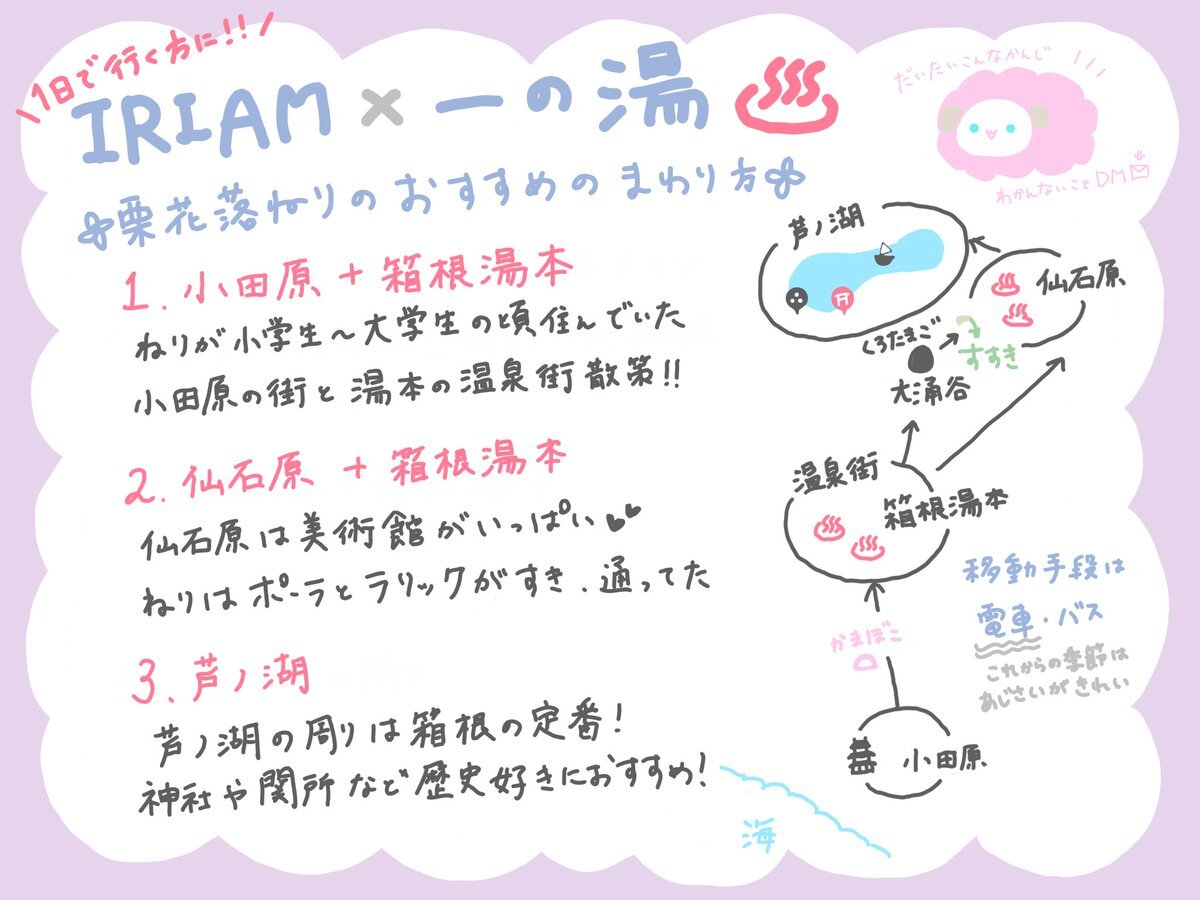 \1日で行く方に!!/
IRIAM×一の湯
栗花落ねりのおすすめのまわり方
1. 小田原+箱根湯本
ねりが小学生~大学生の頃住んでいた
小田原の街と湯本の温泉街散策!!
2. 仙石原+箱根湯本
仙石原は美術館がいっぱい
ねりはポーラとラリックがすき.通ってた
3. 芦ノ湖
芦ノ湖の周りは箱根の定番!
神社や関所など歴史好きにおすすめ!
だいたいこんなかんじ
わかんないことDM
芦ノ湖
仙石原
くろたまご
すすき
大涌谷
温泉街
箱根湯本
移動手段は
電車・バス
これからの季節は
あじさいがきれい
かまぼこ
小田原
海